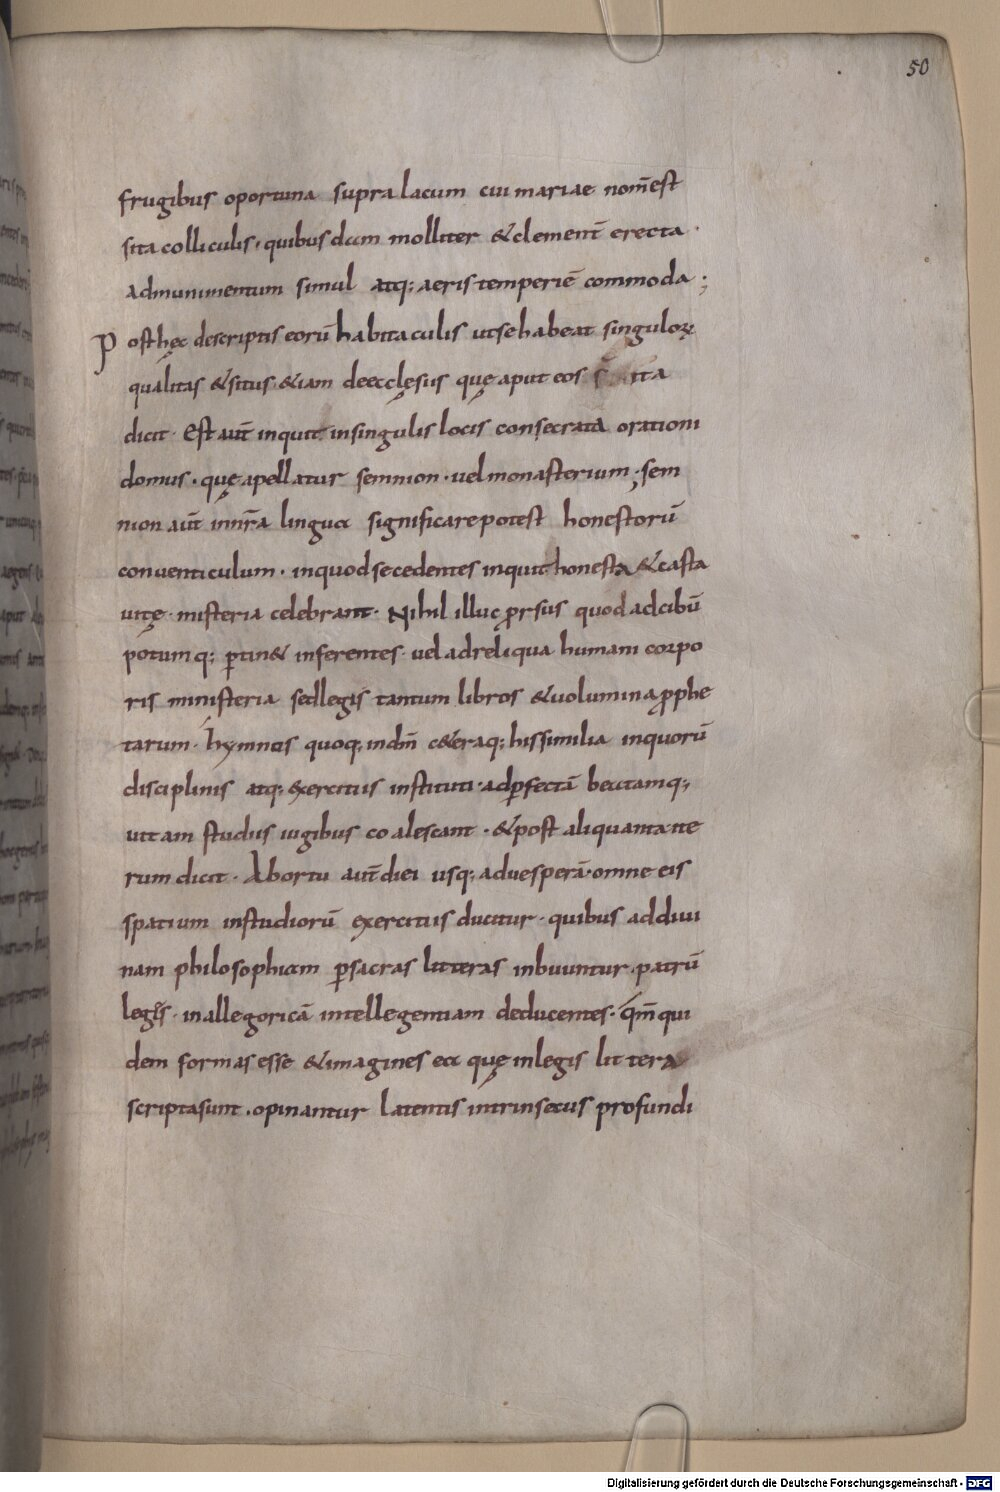 50
frugibus oportuna supra lacum cui mariae nom̄est
sita colliculis · quibusdam molliter &clement̄ erecta ·
admunimentum simul atq; aeris temperiē commoda ;
Post hęc descriptis eorū habitaculis utsehabeat singuloꝝ
qualitas &situs &iam deecclęsiis quę aput eos ita
dicit · Est aut̄ inquit insingulis locis consecrata orationi
domus · quę apellatur semnion · uel monasterium ; sem
nion aut̄ innr̄a lingua significare potest honestorū
conuenticulum · inquod secedentes inquit honesta &casta
uitę misteria celebrant · Nihil illuc ꝓrsus quod adcibū
potumq; ꝑtin& inferentes · uel adreliqua humani corpo
ris ministeria sed legis tantum libros &uolumina ꝓphe
tarum · hymnos quoq; indm̄ c&eraq; his similia inquorū
disciplinis atq; exercitiis instituti · adꝑfectā beatamq;
uitam studiis iugibus coalescant · &post aliquanta ite
rum dicit · Abortu aut̄ diei usq; aduesperā · omne eis
spatium instudiorū exercitiis ducitur · quibus addiui
nam philosophiam ꝑsacras litteras inbuuntur · patrū
legis · inallegoricā intellegentiam deducentes · qm̄ qui
dem formas esse &imagines ea quę inlegis littera
scripta sunt · opinantur latentis intrinsecus profundi
Digitalisierung gefördert durch die Deutsche Forschungsgemeinschaft - DFG